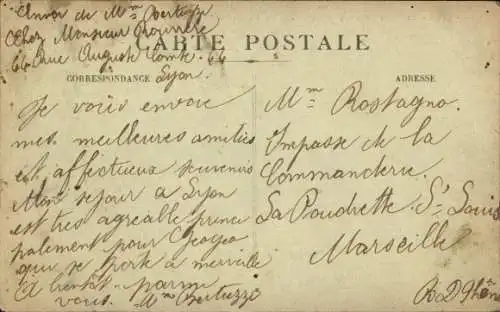 Envoi de Mme Bertuzzi
Chez Monsieur Rourrère
66 rue Auguste Comte. 66
Lyon.
CARTE POSTALE
CORRESPONDANCE
ADRESSE
Je vous envoie
mes meilleures amitiés
et affectueux souvenirs
Mon séjour à Lyon
est très agréable princi
palement pour Géogeo
qui se porte à merveille
A bientôt parmi
vous. Mme Bertuzzi
Mme Rostagno.
Impasse de la
Commanderie.
La Poudrette St Louis
Marseille
B. D. Rhône